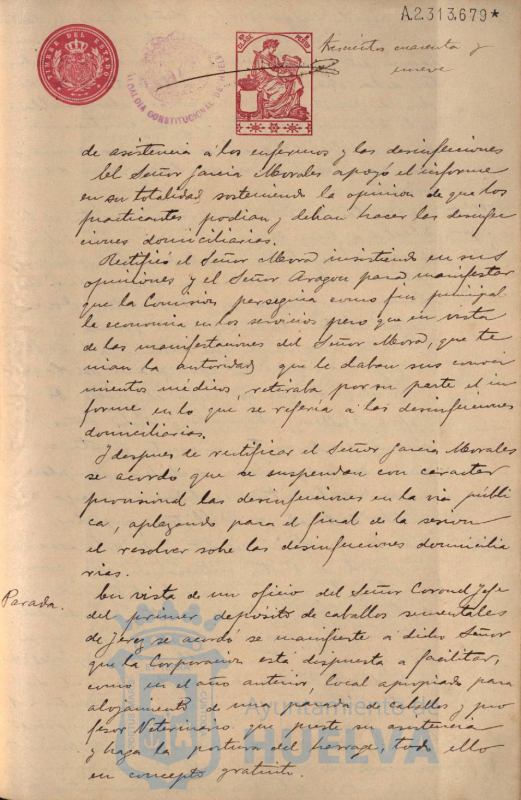 A.2.313.679*
TIMBRE DEL ESTADO
ALCALDIA CONSTITUCIONAL DE
10ª CLASE
Trescientos cuarenta y
nueve
de asistencia á los enfermos y las desinfecciones
El Señor Garcia Morales apoyó el informe
en su totalidad, sosteniendo la opinion de que los
practicantes podian y debian hacer las desinfec
ciones domiciliarias.
Rectificó el Señor Mora insistiendo en sus
opiniones y el Señor Aragon para manifestar
que la Comision perseguia como fin principal
la economia en los servicios pero que en vista
de las manifestaciones del Señor Mora, que te
nian la autoridad que le daban sus conoci
mientos médicos, retiraba por su parte el in
forme en lo que se referia á las desinfecciones
domiciliarias.
Y despues de rectificar el Señor Garcia Morales
se acordó que se suspendan con caracter
provisional las desinfecciones en la via públi
ca, aplazando para el final de la sesion
el resolver sobre las desinfecciones domicilia
rias.
Parada.
En vista de un oficio del Señor Coronel Jefe
del primer depósito de caballos sementales
de Jerez se acordó se manifieste á dicho Señor
que la Corporacion está dispuesta á facilitar,
como en el año anterior, local apropiado para
alojamiento de una parada de caballos y pro
fesor Veterinario que preste su asistencia
y haga la postura del herrage, todo ello
en concepto gratuito.
Ayuntamiento de
HUELVA